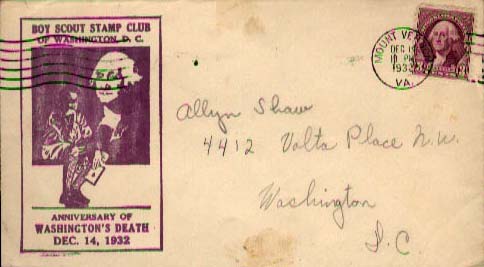 BOY SCOUT STAMP CLUB
OF WASHINGTON, D. C.
ANNIVERSARY OF
WASHINGTON'S DEATH
DEC. 14, 1932
MOUNT
DEC
10 PM
1932
VA.
Allyn Shaw
4412 Volta Place N.W.
Washington
D.C